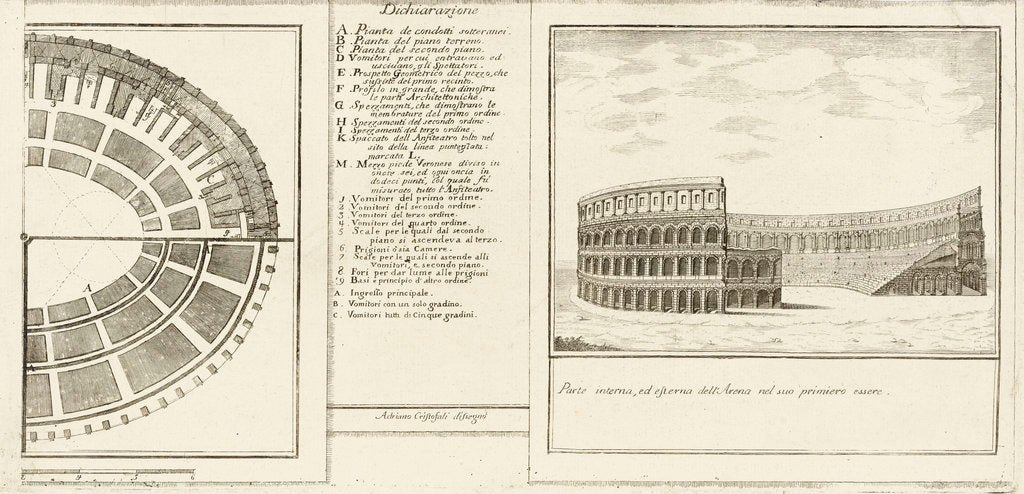 Dichiarazione
A. Pianta de condotti sotteranei.
B. Pianta del piano terreno.
C. Pianta del secondo piano.
D Vomitori per cui entravano ed
uscivano, gli Spettatori.
E. Prospetto Geometrico del pezzo, che
susiste del primo recinto.
F. Profilo in grande, che dimostra
le parti Architettoniche.
G. Spezzamenti, che dimostrano le
membrature del primo ordine.
H Spezzamenti del secondo ordine.
I Spezzamenti del terzo ordine.
K. Spaccato dell Anfiteatro tolto nel
sito della linea punteggiata:
marcata L.
M. Mezzo piede Veronese diviso in
oncie sei, ed ogni oncia in
dodeci punti, col quale fu
misurato tutto l'Anfiteatro.
1 Vomitori del primo ordine.
2 Vomitori del secondo ordine.
3 Vomitori del terzo ordine.
4 Vomitori del quarto ordine.
5 Scale per le quali dal secondo
piano si ascendeva al terzo.
6 Prigioni ò sia Camere.
7 Scale per le quali si ascende alli
Vomitori, e secondo piano.
8 Fori per dar lume alle prigioni
9 Basi e principio d'altro ordine.
A. Ingresso principale.
B. Vomitori con un solo gradino.
C. Vomitori tutti di Cinque gradini.
Adriano Cristofali disegnò
Parte interna, ed esterna dell'Arena nel suo primiero essere.
A